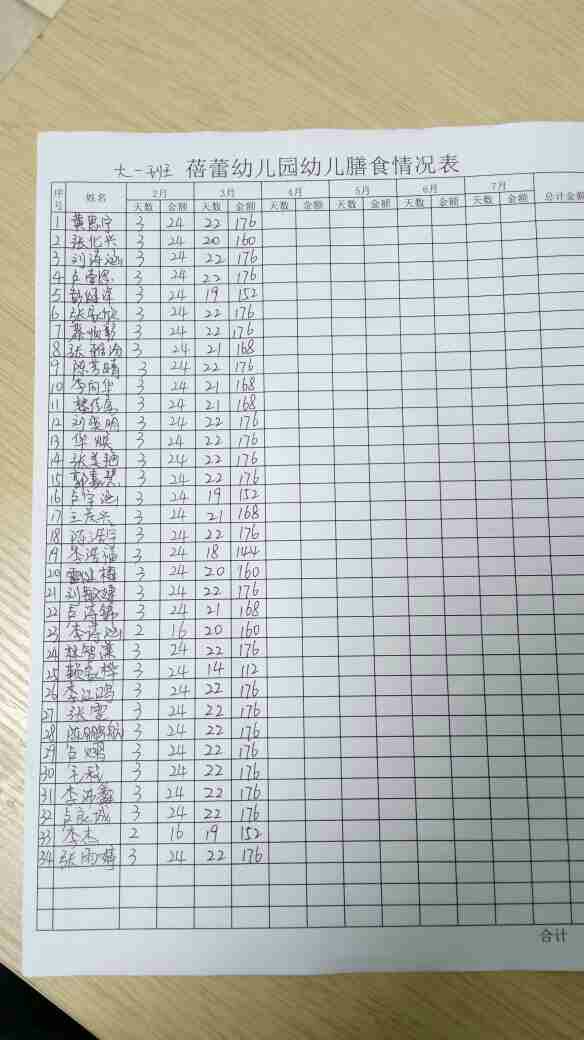 大一班 蓓蕾幼儿园幼儿膳食情况表
序号 姓名 2月 3月 4月 5月 6月 7月 总计金额
天数 金额 天数 金额 天数 金额 天数 金额 天数 金额 天数 金额
1 黄思宁 3 24 22 176
2 张化兴 3 24 20 160
3 刘诗涵 3 24 22 176
4 3 24 22 176
5 3 24 19 152
6 张家欣 3 24 22 176
7 3 24 22 176
8 张 3 24 21 168
9 陈芳晴 3 24 22 176
10 李向华 3 24 21 168
11 3 24 21 168
12 刘奕明 3 24 22 176
13 华焕 3 24 22 176
14 张美艳 3 24 22 176
15 3 24 22 176
16 卢宇涵 3 24 19 152
17 王茂兴 3 24 21 168
18 陈浩宇 3 24 22 176
19 李浩福 3 24 18 144
20 3 24 20 160
21 刘 3 24 22 176
22 3 24 21 168
23 李诗涵 2 16 20 160
24 林智潇 3 24 22 176
25 3 24 14 112
26 李江鸿 3 24 22 176
27 张雯 3 24 22 176
28 陈鹏航 3 24 22 176
29 卢烨 3 24 22 176
30 3 24 22 176
31 李沛鑫 3 24 22 176
32 卢良诚 3 24 22 176
33 李杰 2 16 19 152
34 张雨婷 3 24 22 176
合计